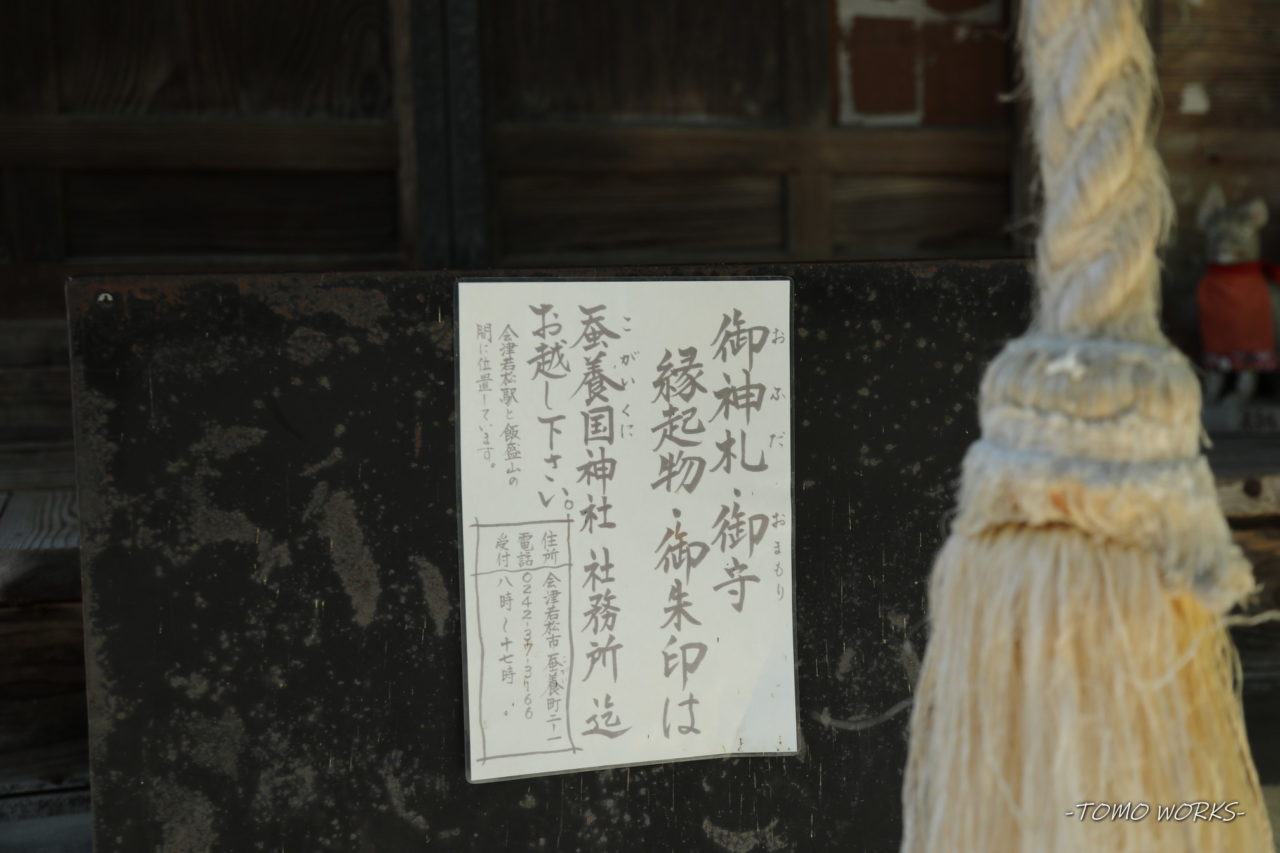 御神札・御守
おふだ
おまもり
縁起物・御朱印は
蚕養国神社 社務所 迄
こがいくに
お越し下さい。
会津若松駅と飯盛山の
間に位置しています。
住所 会津若松市蚕養町二-一
電話
受付 八時〜十七時
-TOMO WORKS-